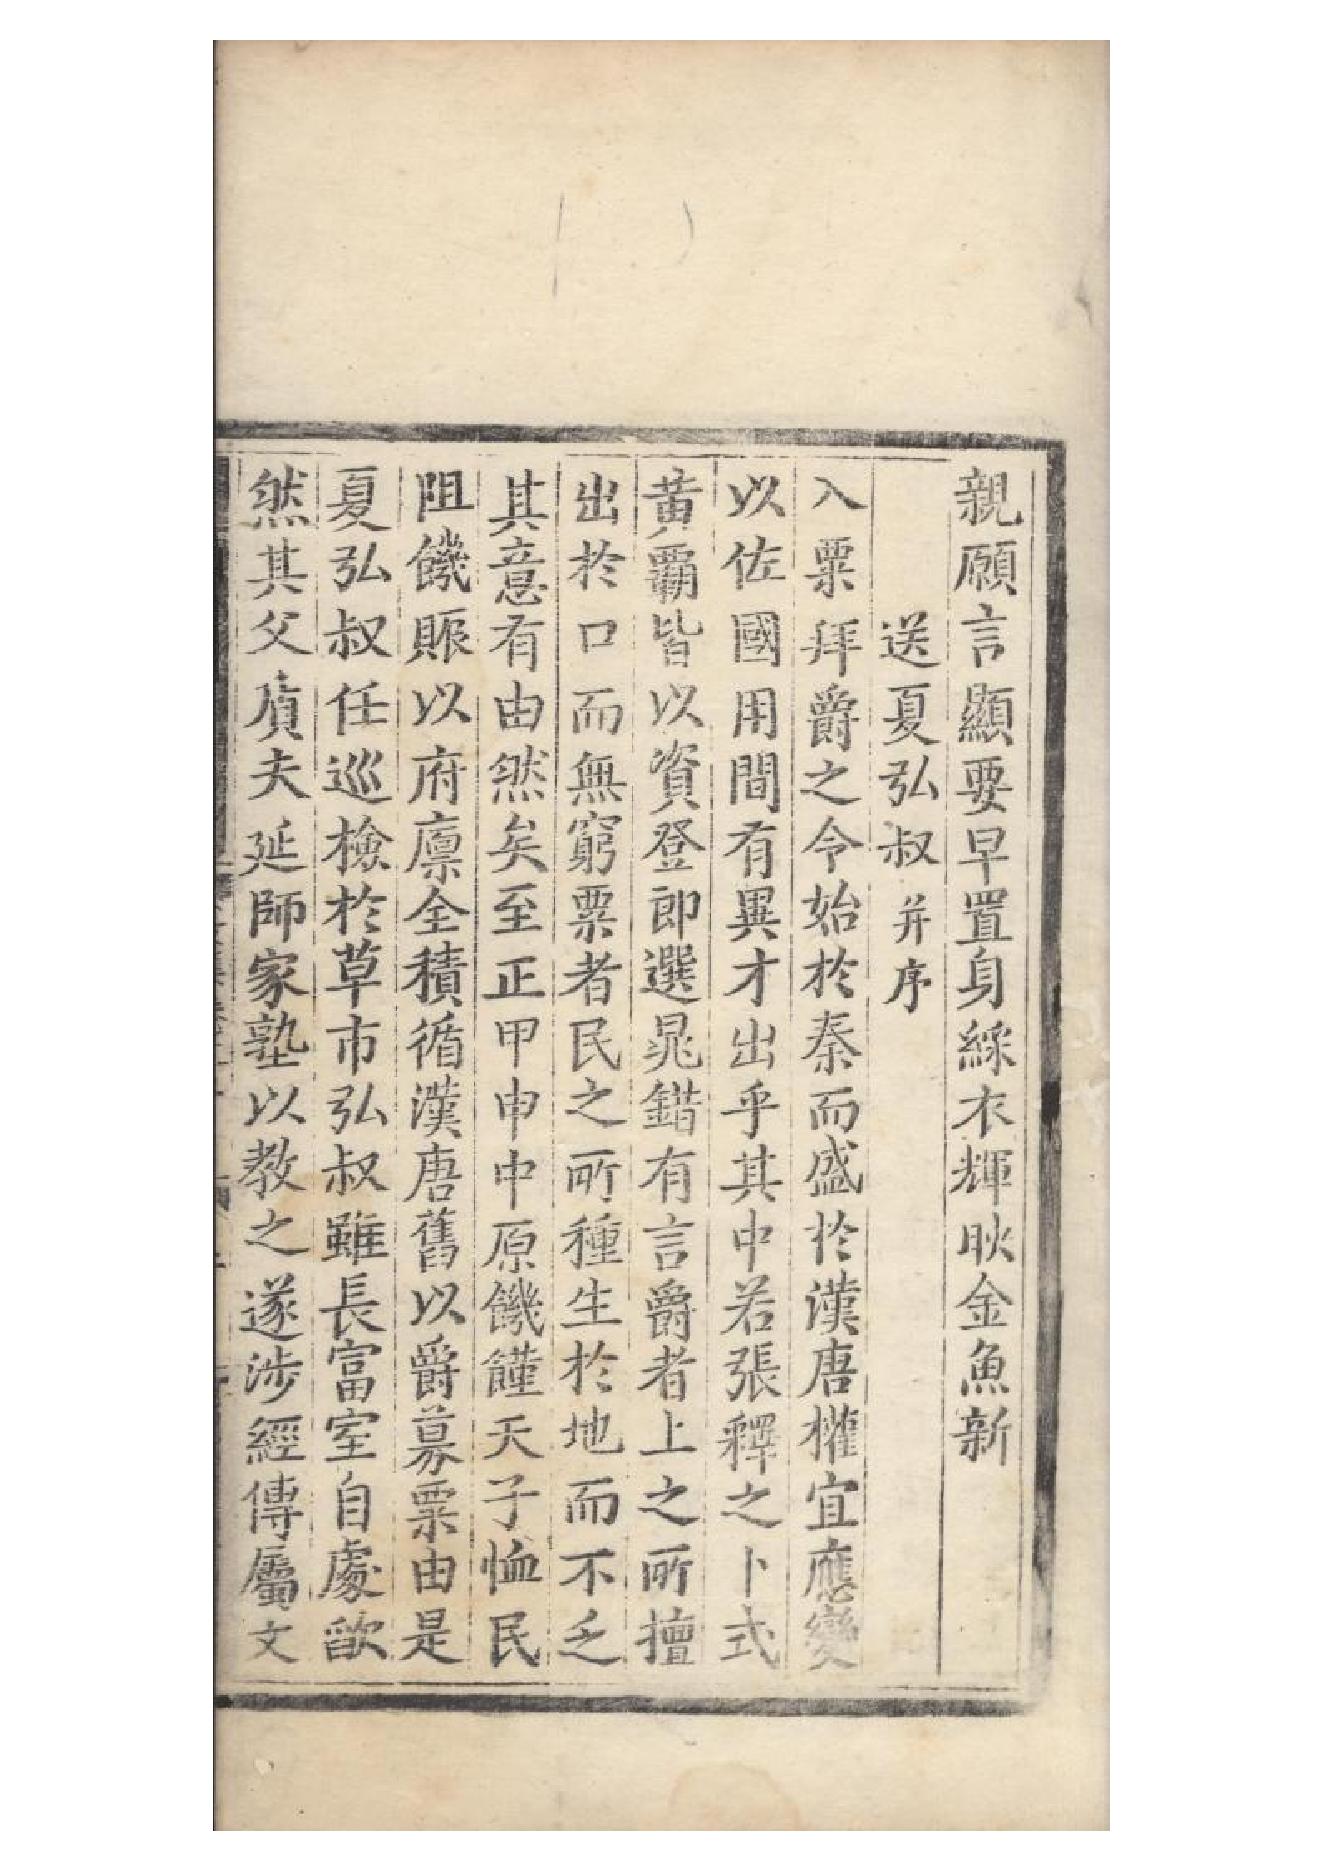 親願言顯要早置身綵衣輝映金魚新
送夏弘叔并序
入粟拜爵之令始於秦而盛於漢唐權宜應變
以佐國用間有異才出乎其中若張釋之卜式
黄霸皆以資登即選晁錯有言爵者上之所擅
出於口而無窮粟者民之所種生於地而不乏
其意有由然矣至正甲申中原饑饉天子恤民
阻饑賑以府廪全積循漢唐舊以爵募粟由是
夏弘叔任巡檢於草市弘叔雖長富室自處欿
然其父賔夫延師家塾以教之遂涉經傳屬文